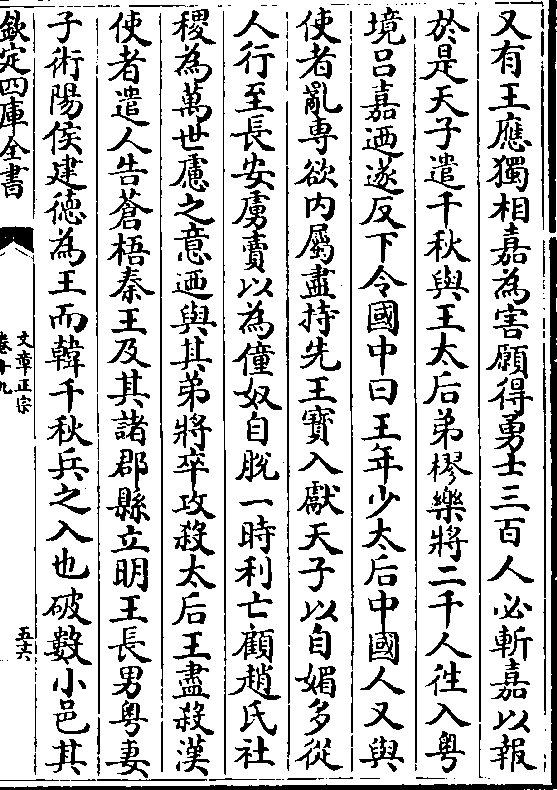 又有王應獨相嘉為害願得勇士三百人必斬嘉以報
於是天子遣千秋與王太后弟樛樂將二千人徃入粵
境吕嘉迺遂反下令國中曰王年少太后中國人又與
使者亂専欲内屬盡持先王寳入獻天子以自媚多從
人行至長安虜賣以為僮奴自脱一時利亡顧趙氏社
稷為萬世慮之意迺與其弟將卒攻殺太后王盡殺漢
使者遣人告蒼梧秦王及其諸郡縣立明王長男粵妻
子術陽侯建徳為王而韓千秋兵之入也破數小邑其
欽定四庫全書
文章正宗
卷十九
五十六